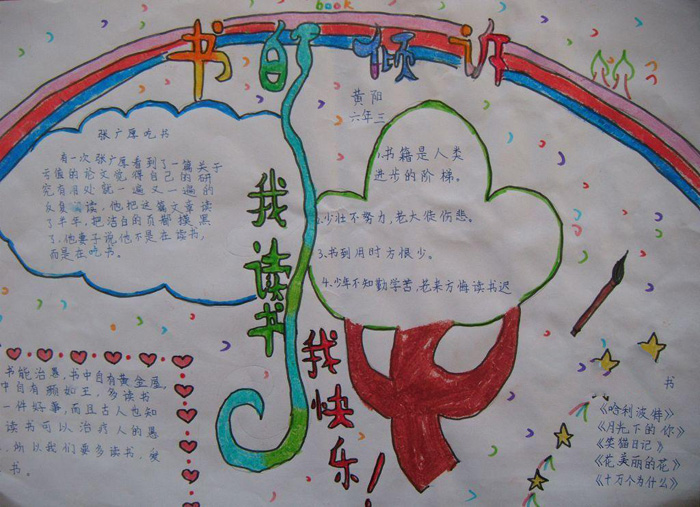 book
书的倾诉
黄阳
六年三
张广厚吃书
有一次张广厚看到了一篇关于
亏值的论文觉得自己的研
究有用处就一遍又一遍的
反复阅读，他把这篇文章读
了半年，把洁白的页都摸黑
了，他妻子说他不是在读书，
而是在吃书。
我读书
我快乐！
1、书籍是人类
进步的阶梯。
2.少壮不努力，老大徒伤悲。
3.书到用时方恨少。
4、少年不知勤学苦，老来方悔读书迟
书能治愚，书中自有黄金屋，
中自有颜如玉，多读书
一件好事，而且古人也知
读书可以治疗人的愚
，所以我们要多读书，爱
书。
书
《哈利波特》
《月光下的你》
《笑猫日记》
《花美丽的花》
《十万个为什么》